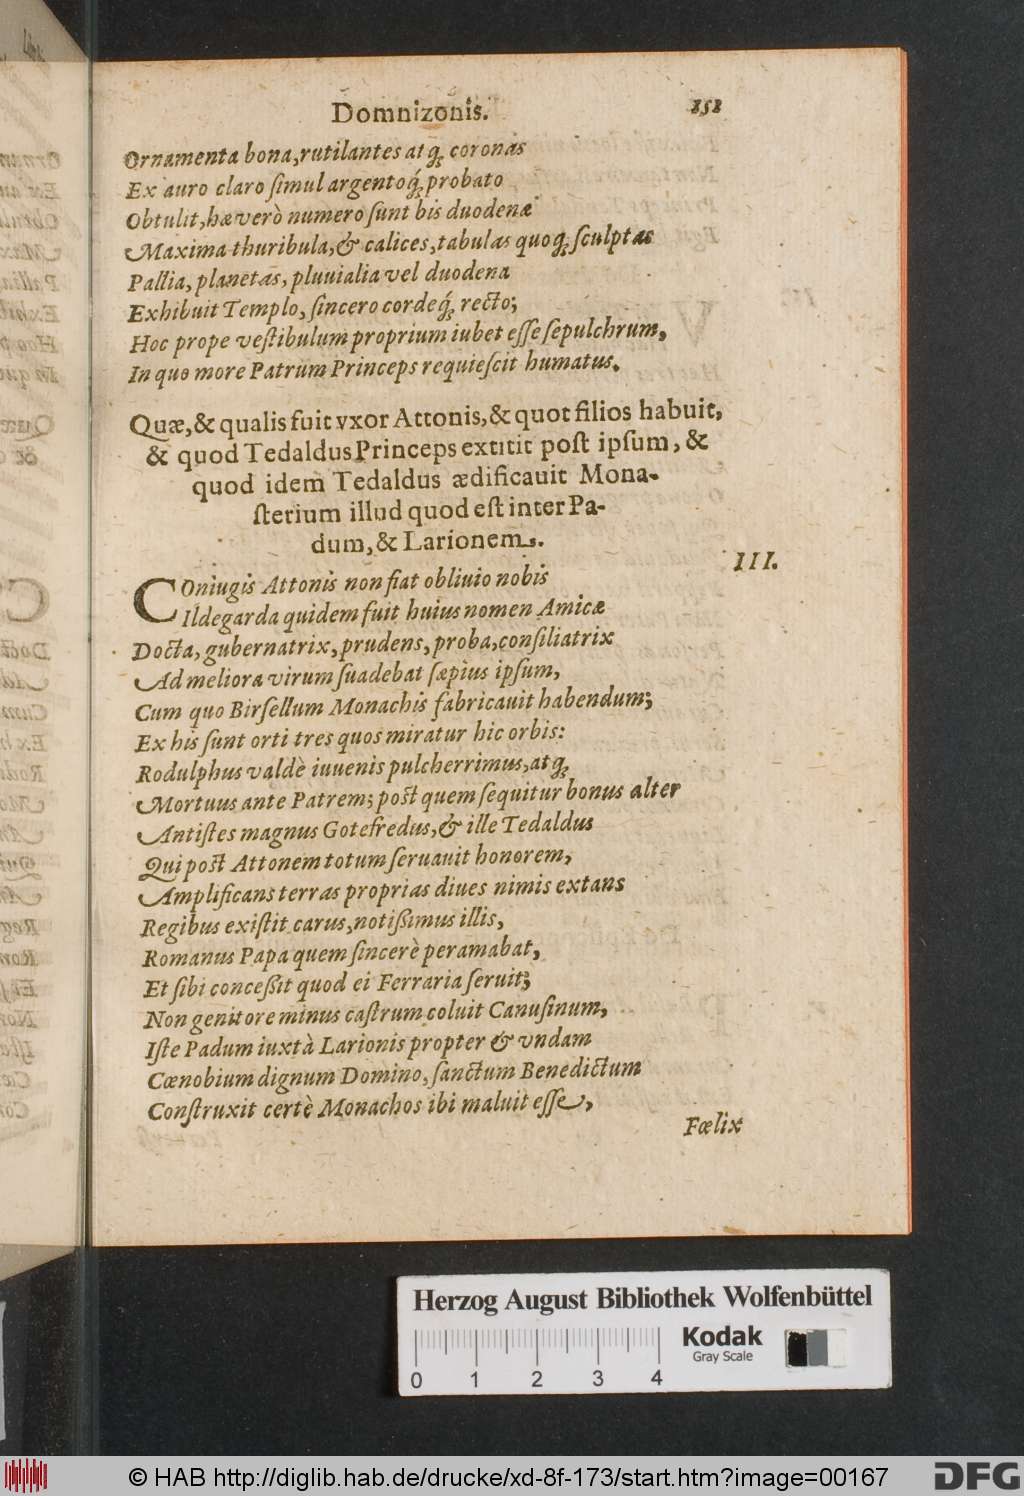 Domnizonis. 151
Ornamenta bona, rutilantes atq́; coronas
Ex auro claro ſimul argentoq́; probato
Obtulit, hæ verò numero ſunt bis duodenæ
Maxima thuribula, & calices, tabulas quoq́; ſculptas
Pallia, planetas, pluuialia vel duodena
Exhibuit Templo, ſincero cordeq́; recto;
Hoc prope veſtibulum proprium iubet eſſe ſepulchrum,
In quo more Patrum Princeps requieſcit humatus.
Quæ, & qualis fuit vxor Attonis, & quot filios habuit,
& quod Tedaldus Princeps extitit poſt ipſum, &
quod idem Tedaldus ædificauit Mona-
ſterium illud quod eſt inter Pa-
dum, & Larionem.
III.
COniugis Attonis non fiat obliuio nobis
Ildegarda quidem fuit huius nomen Amicæ
Docta, gubernatrix, prudens, proba, conſiliatrix
Ad meliora virum ſuadebat ſæpius ipſum,
Cum quo Birſellum Monachis fabricauit habendum;
Ex his ſunt orti tres quos miratur hic orbis:
Rodulphus valdè iuuenis pulcherrimus, atq́;
Mortuus ante Patrem; poſt quem ſequitur bonus alter
Antiſtes magnus Gotefredus, & ille Tedaldus
Qui poſt Attonem totum ſeruauit honorem,
Amplificans terras proprias diues nimis extans
Regibus exiſtit carus, notißimus illis,
Romanus Papa quem ſincerè peramabat,
Et ſibi conceßit quod ei Ferraria ſeruit;
Non genitore minus caſtrum coluit Canuſinum,
Iſte Padum iuxtà Larionis propter & vndam
Cœnobium dignum Domino, ſanctum Benedictum
Conſtruxit certè Monachos ibi maluit eſſe,
Fœlix
Herzog August Bibliothek Wolfenbüttel
Kodak
Gray Scale
0 1 2 3 4
© HAB http://diglib.hab.de/drucke/xd-8f-173/start.htm?image=00167
DFG